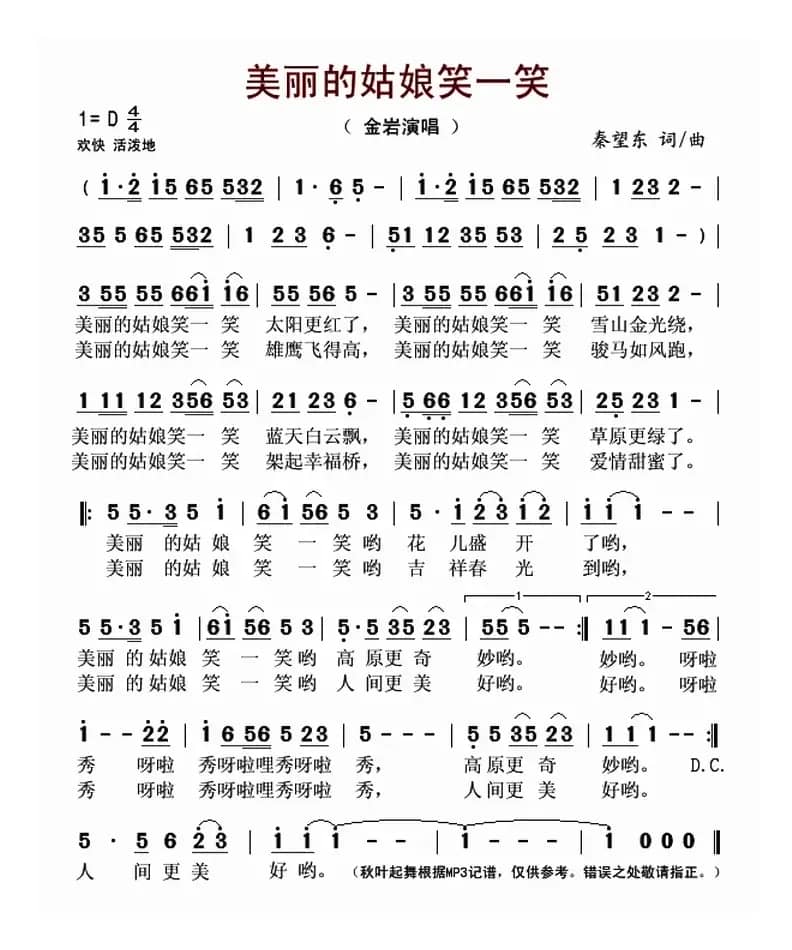 美丽的姑娘笑一笑
1= D 4/4
（ 金岩演唱 ）
欢快 活泼地
秦望东 词/曲
( 1·2 15 65 532 | 1· 6 5 - | 1·2 15 65 532 | 1 23 2 - |
35 5 65 532 | 1 2 3 6 - | 51 12 35 53 | 2 5 2 3 1 - ) |
3 55 55 661 16 | 55 56 5 - | 3 55 55 661 16 | 51 23 2 - |
美丽的姑娘笑一 笑 太阳更红了， 美丽的姑娘笑一 笑 雪山金光绕，
美丽的姑娘笑一 笑 雄鹰飞得高， 美丽的姑娘笑一 笑 骏马如风跑，
1 11 12 356 53 | 21 23 6 - | 5 66 12 356 53 | 25 23 1 - |
美丽的姑娘笑一 笑 蓝天白云飘， 美丽的姑娘笑一 笑 草原更绿了。
美丽的姑娘笑一 笑 架起幸福桥， 美丽的姑娘笑一 笑 爱情甜蜜了。
‖: 5 5·3 5 1 | 61 56 5 3 | 5 · 1 23 12 | 11 1 - - |
美丽 的姑 娘 笑 一 笑哟 花 儿盛 开 了哟，
美丽 的姑 娘 笑 一 笑哟 吉 祥春 光 到哟，
1 2
5 5·3 5 1 | 61 56 5 3 | 5·5 35 23 | 55 5 - - :‖ 11 1 - 56 |
美丽 的 姑娘 笑 一 笑哟 高 原更 奇 妙哟。 妙哟。 呀啦
美丽 的 姑娘 笑 一 笑哟 人 间更 美 好哟。 好哟。 呀啦
1 - - 22 | 1 6 56 5 23 | 5 - - - | 5 5 35 23 | 11 1 - - :‖
秀 呀啦 秀呀啦哩秀呀啦 秀， 高原更 奇 妙哟。 D.C.
秀 呀啦 秀呀啦哩秀呀啦 秀， 人间更 美 好哟。
5 · 5 6 2 3 | 11 1 - - | 1 - - - | 1 0 0 0 ‖
人 间更 美 好 哟。 （秋叶起舞根据MP3记谱，仅供参考。错误之处敬请指正。）